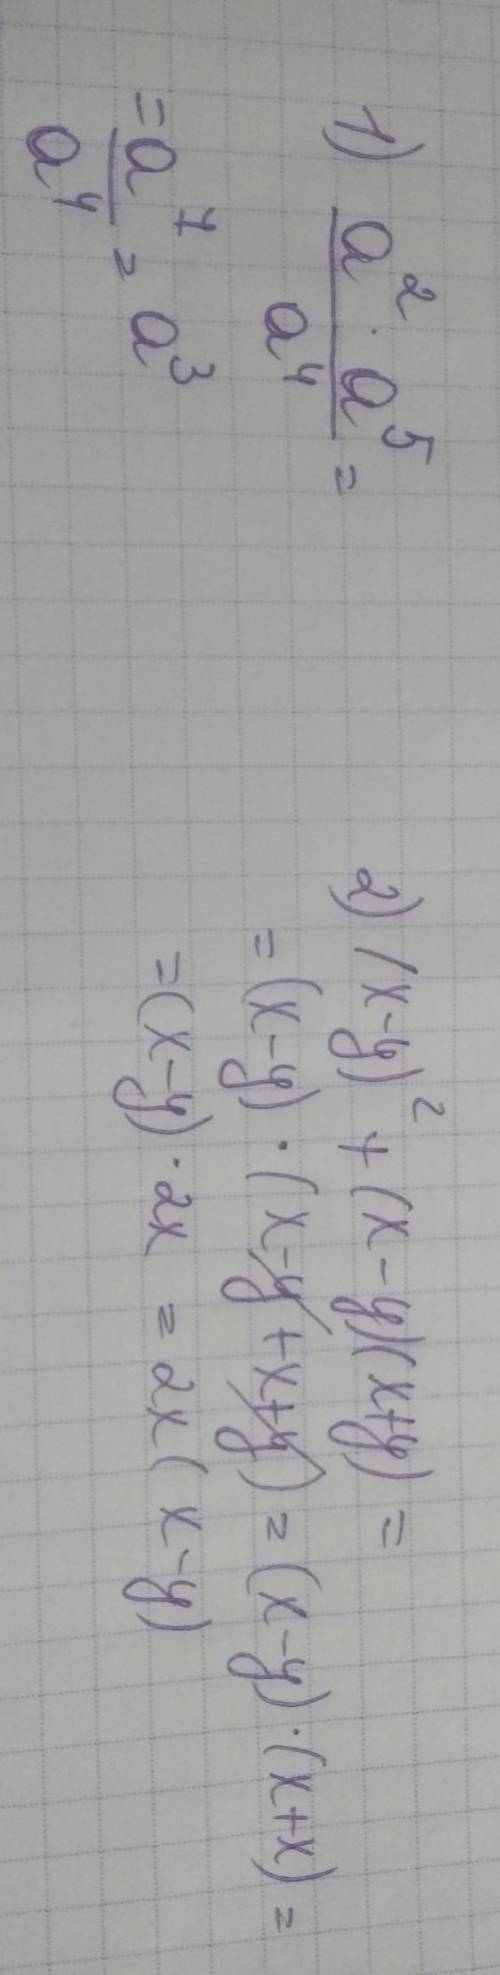 1) (a² · a⁵)/a⁴ =
= a⁷/a⁴ = a³
2) (x-y)² + (x-y)(x+y) =
= (x-y) · (x-y+x+y) = (x-y) · (x+x) =
= (x-y) · 2x = 2x(x-y)